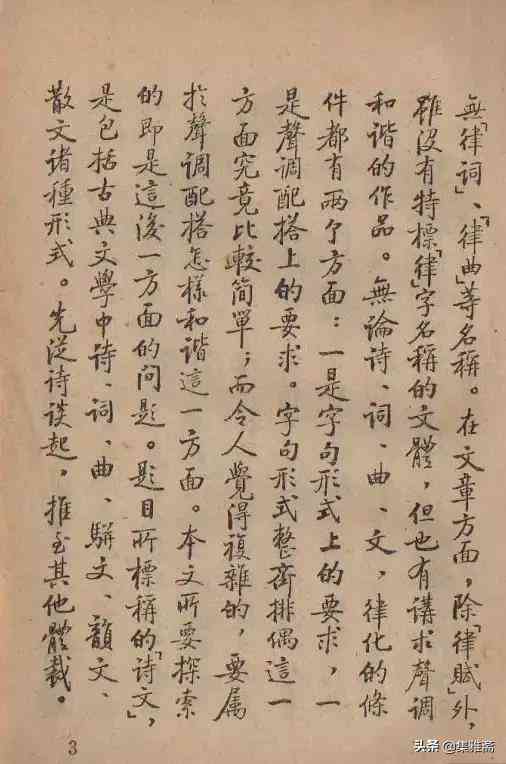 無「律詞」、「律曲」等名稱。在文章方面，除「律賦」外，
雖没有特標「律」字名稱的文體，但也有講求聲調
和諧的作品。無論詩、詞、曲、文，律化的條
件都有兩个方面：一是字句形式上的要求，一
是聲調配搭上的要求。字句形式整齊排偶這一
方面究竟比較簡單；而令人覺得複雜的，要属
扵聲調配搭怎樣和諧這一方面。本文所要探索
的即是這後一方面的问题。题目所標稱的「詩文」，
是包括古典文學中诗、词、曲、駢文、韻文、
散文诸種形式。先従诗谈起，推至其他體裁。
3
头条 @集雅斋